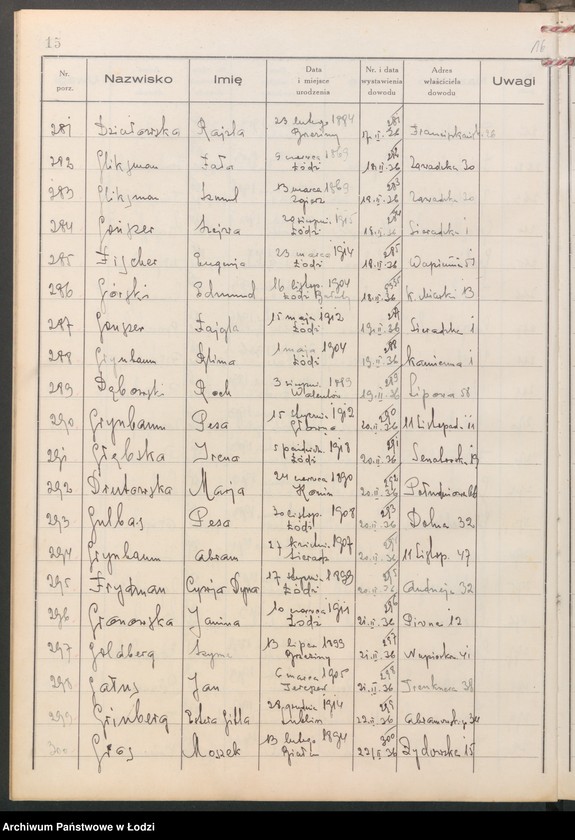 15
16
Nr. porz. Nazwisko Imię Data i miejsce urodzenia Nr. i data wystawienia dowodu Adres właściciela dowodu Uwagi
281 Działowska Rajzla 23 lutego 1884 Brzeziny 281 17.II.36 Franciszkańska 26
282 Gliksman Fala 9 czerwca 1869 Łódź 282 18.II.36 Zawadzka 30
283 Gliksman Szmul 13 marca 1869 Zgierz 283 18.II.36 Zawadzka 30
284 1915 Łódź 284 Sieradzka 1
285 Fischer Eugenia 23 marca 1914 Łódź 285 18.II.36
286 Górski Edmund 16 listop. 1904 Łódź 18.II.36 13
287 Fajgla 15 maja 1912 Łódź 287 19.II.36 Sieradzka 1
288 Grynbaum Glima 1 maja 1904 Łódź 288 19.II.36 Kamienna 1
289 Dąbrowski Roch 3 sierpn. 1889 289 19.II.36 Lipowa 58
290 Grynbaum Pesa 15 stycznia 1912 Głowno 290 20.II.36 11 Listopad. 11
291 Głębska Irena 5 październ. 1918 Łódź 291 20.II.36 Senatorska 19
292 Drutowska Marja 24 czerwca 1890 Konin 292 20.II.36 Południowa 66
293 Gulbas Pesa 20 listop. 1908 Łódź 293 20.II.36 Dolna 32
294 Grynbaum Abram 27 kwietn. 1907 Sieradz 20.II.36 11 Listop. 47
295 Frydman Cywja Dyna 17 stycznia 1898 Łódź 295 20.II.36 Andrzeja 32
296 Gronowska Janina 10 czerwca 1911 Łódź 296 21.II.36 Piwna 12
297 Goldberg Szyma 13 lipca 1899 Brzeziny 297 21.II.36 Wapienka 41
298 Gałus Jan 6 marca 1905 298 21.II.36 38
299 Grinberg Estera Gitla 28 grudnia 1914 Lublin 299 22.II.36 Abramowsk. 34
300 Gros Moszek 13 lutego 1894 Biała 300 22.II.36 Żydowska 15
Archiwum Państwowe w Łodzi